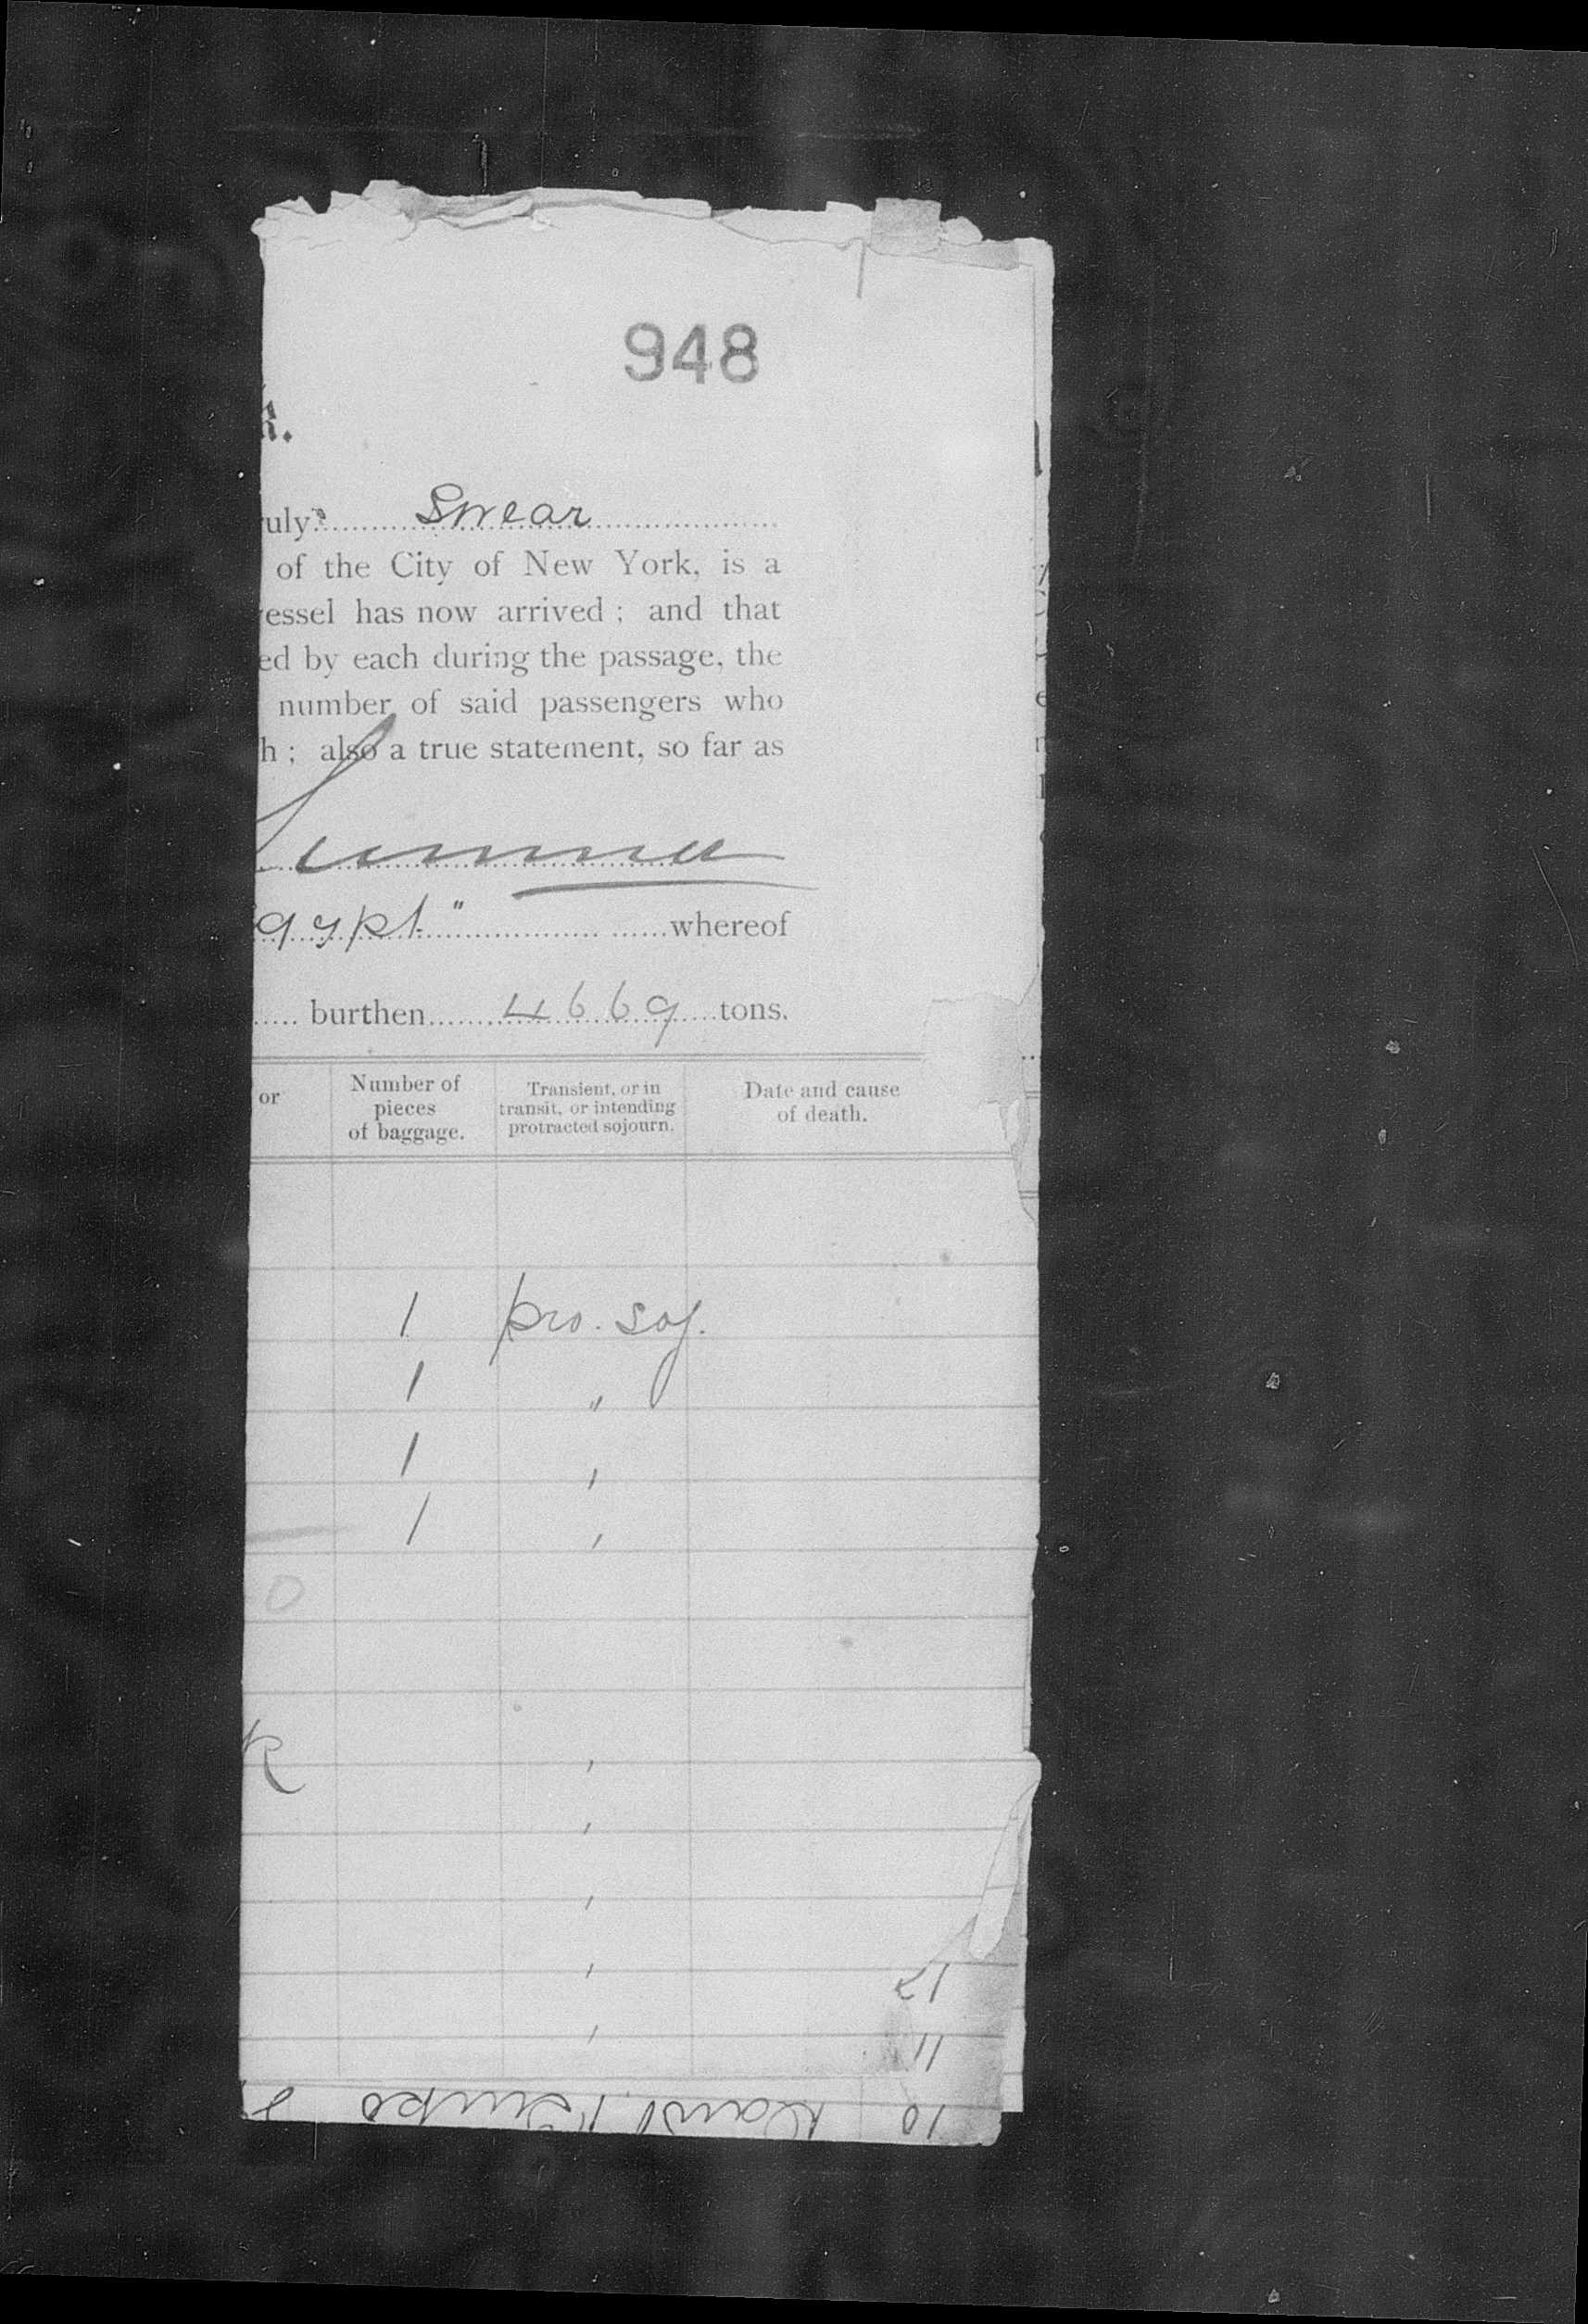 948
k.
uly Swear
of the City of New York, is a
essel has now arrived ; and that
ed by each during the passage, the
number of said passengers who
h ; also a true statement, so far as
gypt" whereof
burthen 4669 tons.
or Number of pieces of baggage. Transient, or in transit, or intending protracted sojourn. Date and cause of death.
1 pro. soj.
1 "
1 '
1 '
0
R '
'
'
'
'
12
11
10